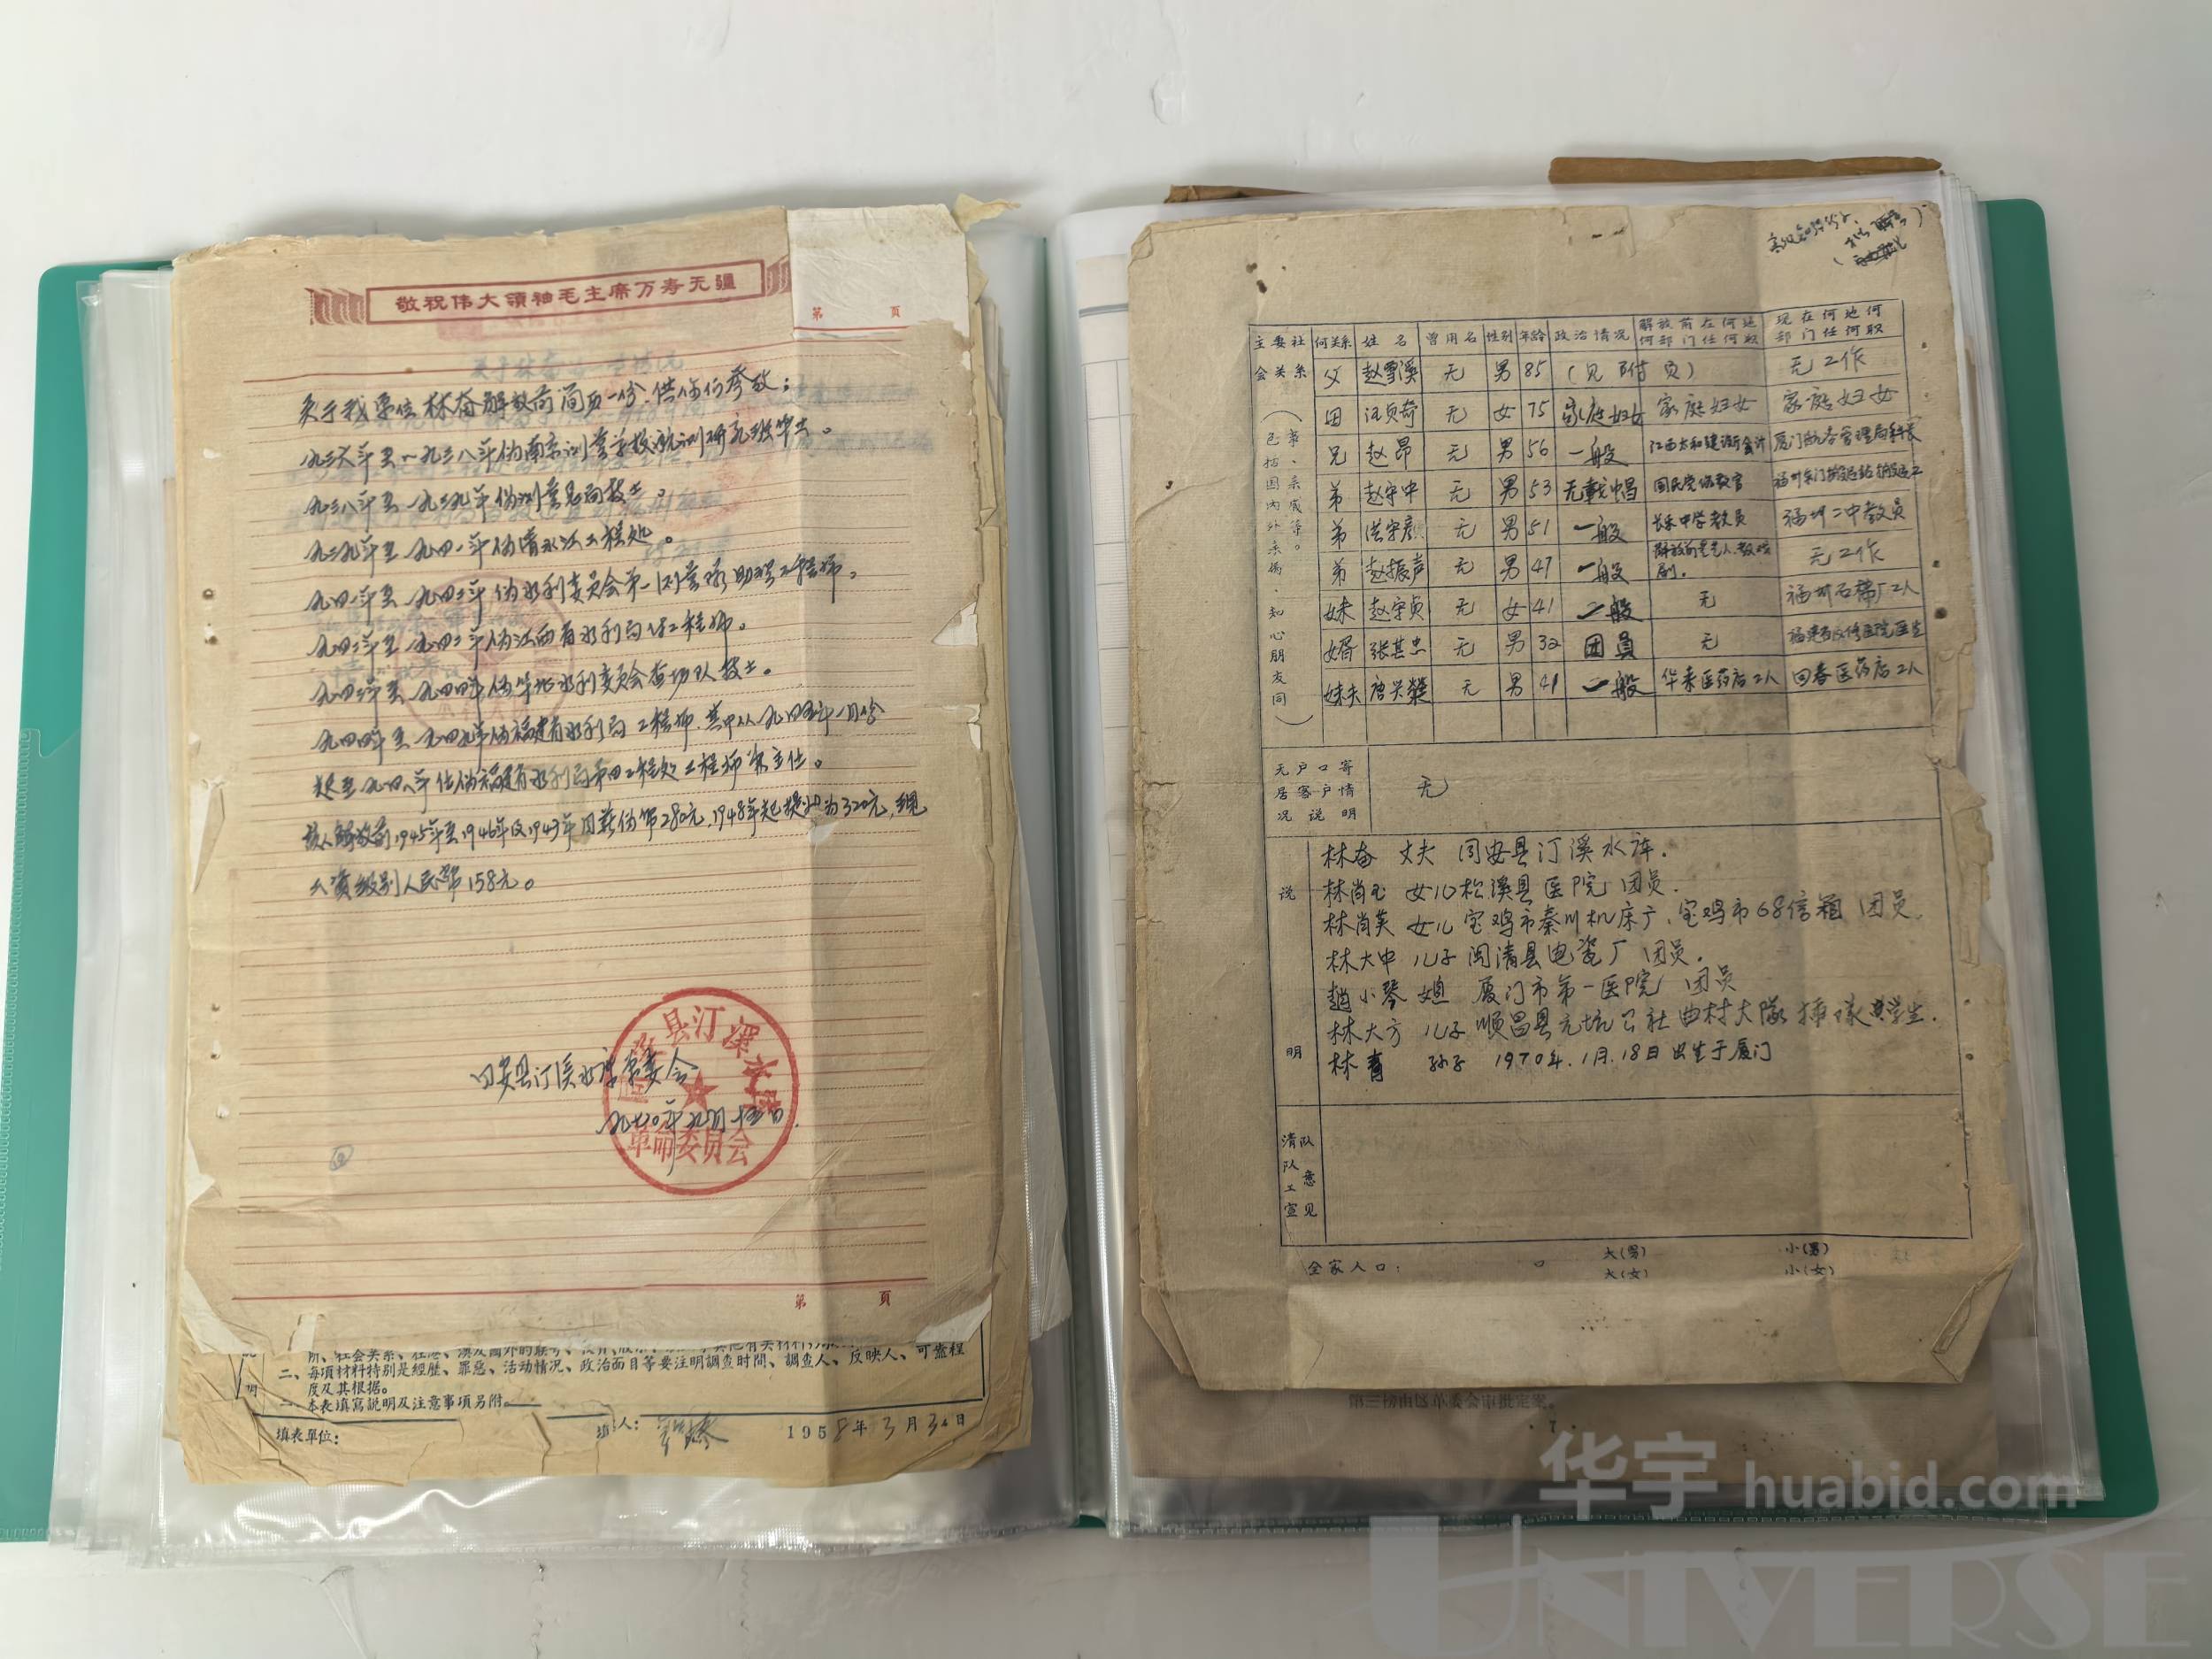 敬祝伟大領袖毛主席万寿无疆
第 頁
关于我单位林奋解放前简历一份，供你们参考：
一九三六年至一九三八年伪南京测量学校航测研究班毕业。
一九三八年至一九三九年伪测量总局技士。
一九三九年至一九四一年伪清水江工程处。
一九四一年至一九四二年伪水利委员会第一测量队助理工程师。
一九四二年至一九四三年伪江西省水利局工程师。
一九四三年至一九四四年伪华北水利委员会查勘队技士。
一九四四年至一九四九年伪福建省水利局工程师，其中从一九四五年一月份
起至一九四八年任伪福建省水利局第四工程处工程师兼主任。
该人解放前1945年至1946年及1947年月薪伪币280元，1948年起提升为320元，现
工资级别人民币158元。
同安县汀溪水库革委会
一九七〇年九月十五日
同安县汀溪水库
革命委员会
第 頁
所、社会关系、在港、澳及國外的
二、每項材料特别是經歷、罪惡、活动情况、政治面目等要注明調查时間、調查人、反映人、可靠程
度及其根据。
本表填寫說明及注意事項另附。
填表單位: 填 人: 1958年3月30日
主要社会关系 何关系 姓名 曾用名 性别 年龄 政治情况 解放前在何地何部门任何职 现在何地何部门任何职
（包括国内外亲属、知心朋友同事、亲戚等。）
父 赵雪溪 无 男 85 （见附页） 无工作
母 汪贞琦 无 女 75 家庭妇女 家庭妇女 家庭妇女
兄 赵昂 无 男 56 一般 江西太和建设厅会计 厦门航务管理局科长
弟 赵守中 无 男 53 无戴帽 国民党
弟 洪守彦 无 男 51 一般 长乐中学教员 福州二中教员
弟 赵振声 无 男 47 一般 解放前是艺人 剧. 无工作
妹 赵守贞 无 女 41 一般 无 福州石棉厂工人
婿 张其忠 无 男 32 团员 无 医院医生
妹夫 唐兴 无 男 41 一般 华来医药店工人 回春医药店工人
无户口寄居客户情况说明 无
说明
林奋 丈夫 同安县汀溪水库.
林尚玉 女儿 松溪县医院 团员.
林尚英 女儿 宝鸡市秦川机床厂，宝鸡市68信箱 团员.
林大中 儿子 闽清县电瓷厂 团员.
趙小琴 媳 厦门市第一医院 团员
林大方 儿子 顺昌县元坑公社曲村大隊插隊学生.
林青 孙子 1970年.1月.18日出生于厦门
清队队工宣意见
全家人口： 口 大(男) 小(男)
大(女) 小(女)
第三榜由区革委会审批定案。
·7·
华宇 huabid.com
UNIVERSE